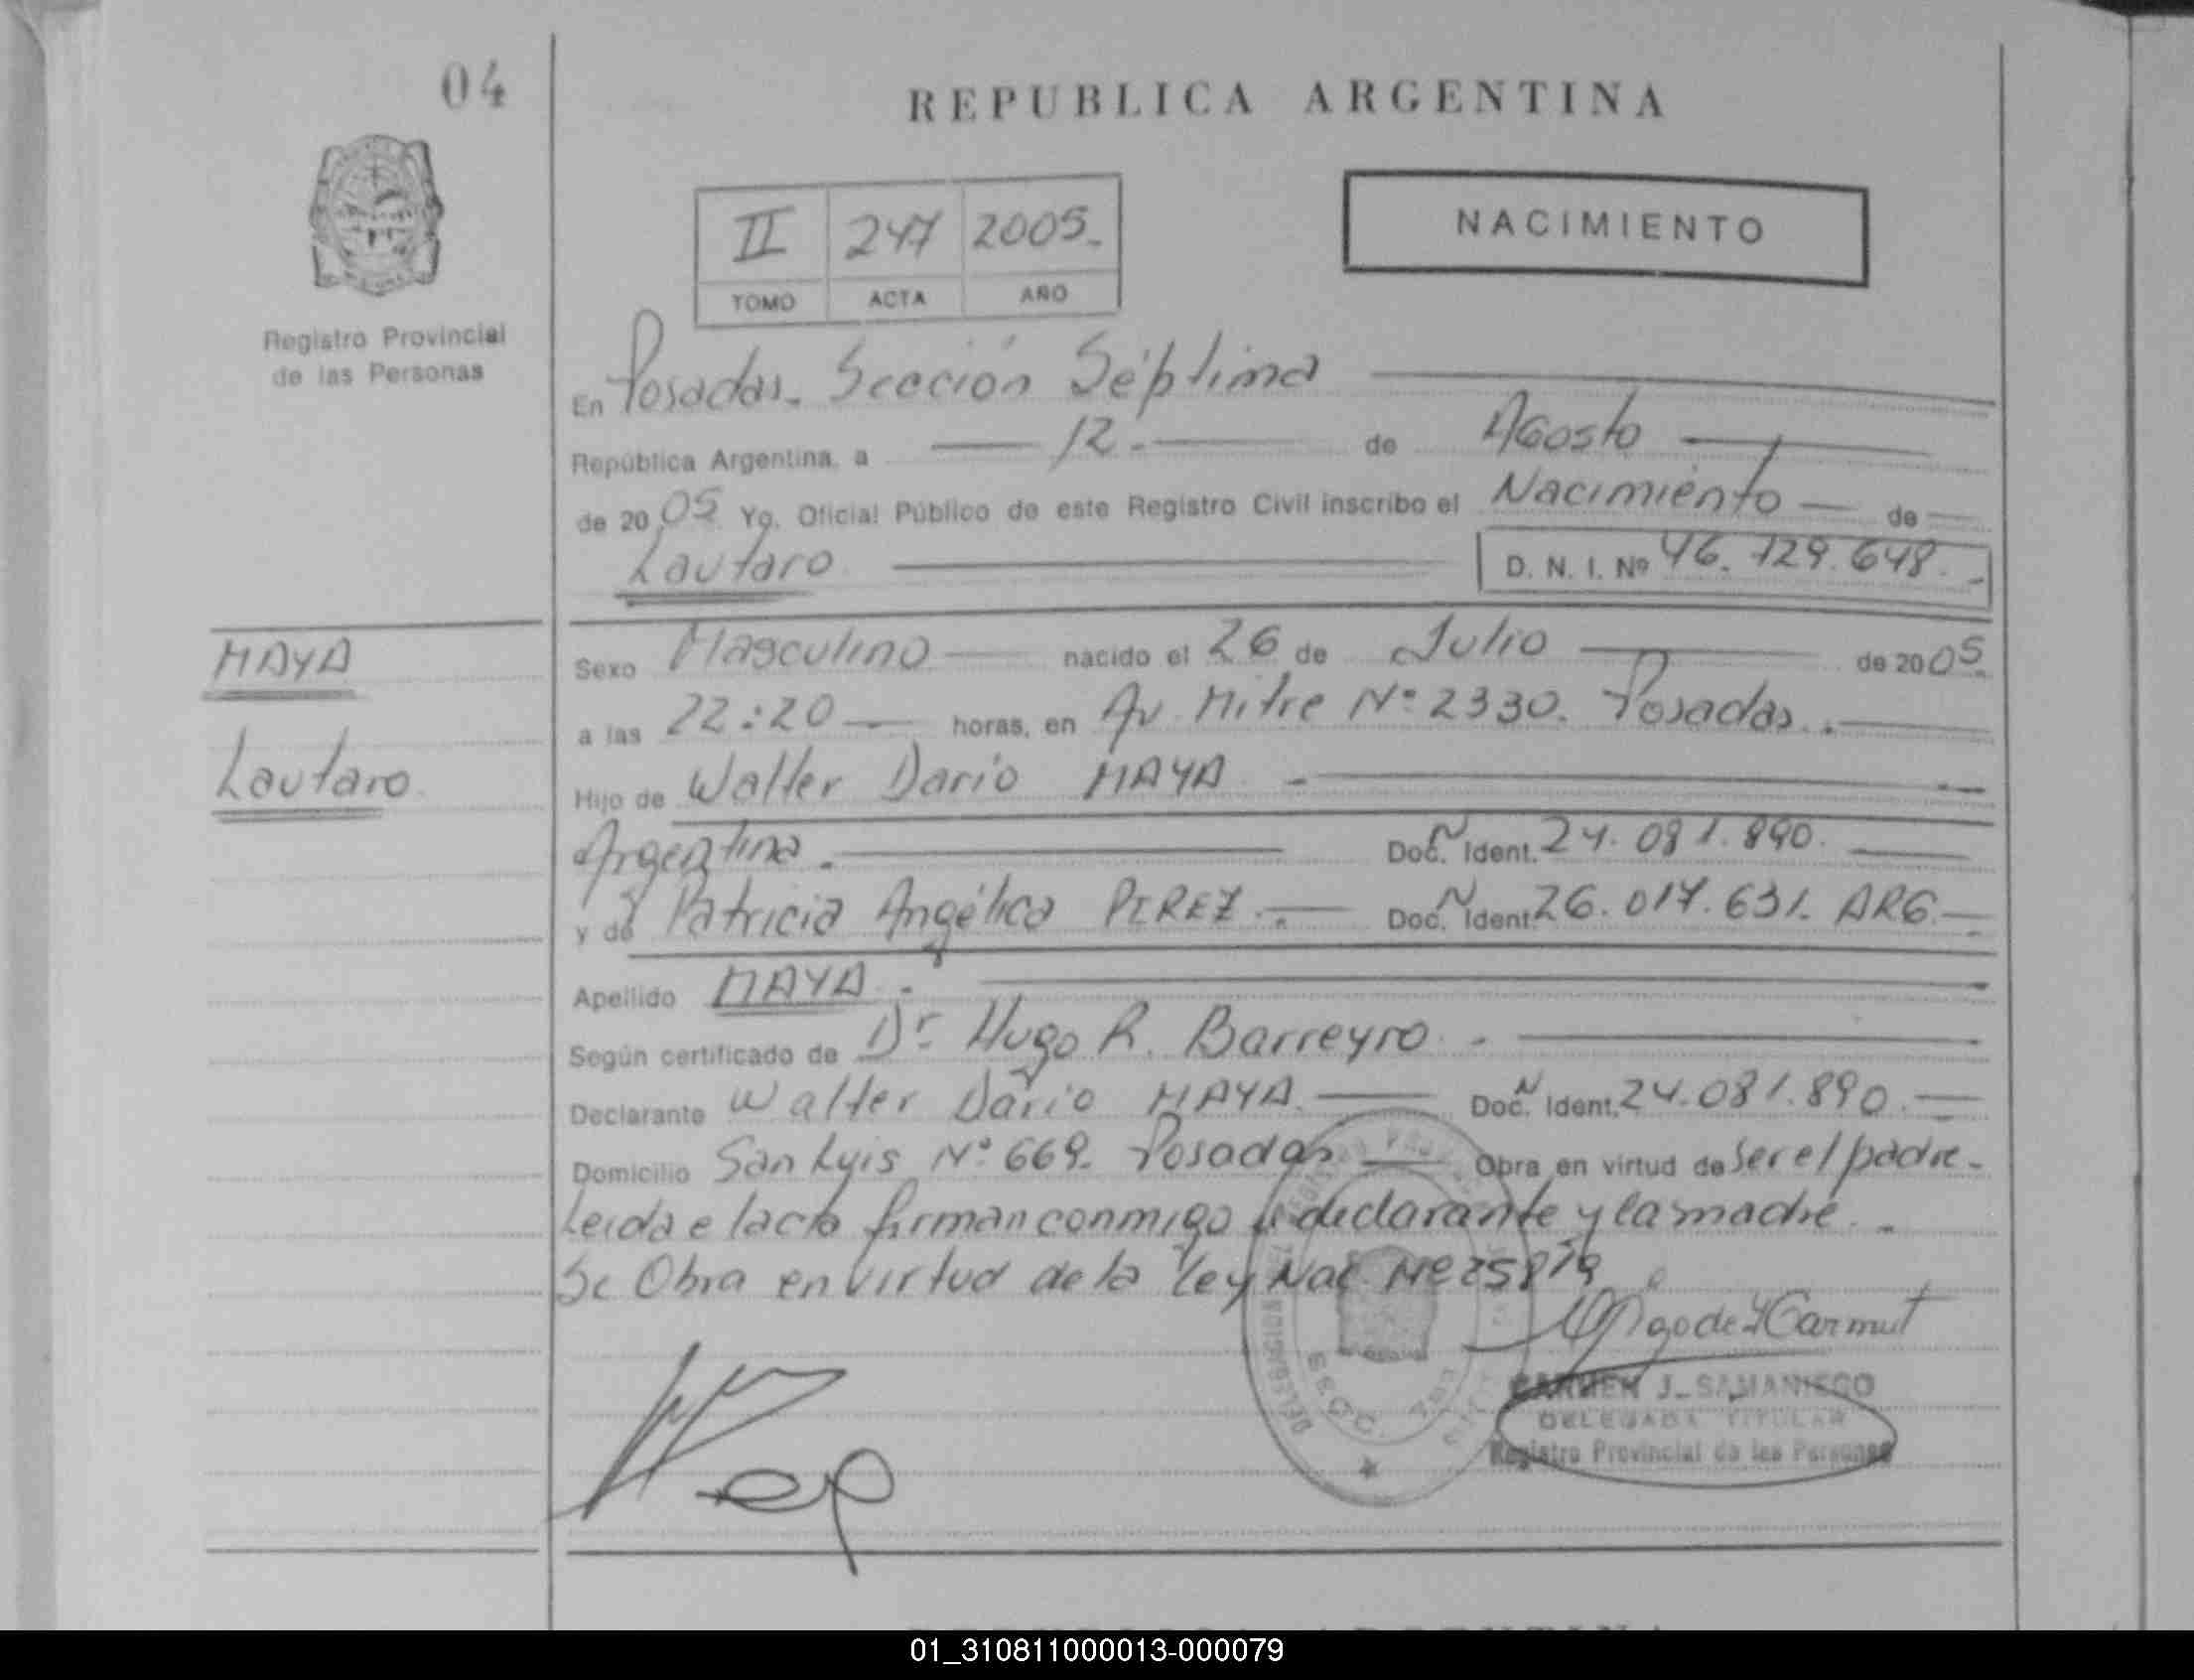 04
REPUBLICA ARGENTINA
II 247 2005.
TOMO ACTA AÑO
NACIMIENTO
Registro Provincial
de las Personas
En Posadas. Sección Séptima
República Argentina, a 12.- de Agosto
de 20 05 Yo, Oficial Público de este Registro Civil inscribo el Nacimiento de
Lautaro D. N. I. Nº 46.729.648.-
MAYA
Lautaro
Sexo Masculino nacido el 26 de Julio de 20 05.
a las 22:20 horas, en Av. Mitre Nº 2330. Posadas.
Hijo de Walter Dario MAYA
Argentina. Doc. Ident. 24.081.890.
y de Patricia Angélica PEREZ.- Doc. Ident. 26.017.631. ARG.
Apellido MAYA.
Según certificado de Dr Hugo R. Barreyro.
Declarante Walter Dario MAYA. Doc. Ident. 24.081.890.
Domicilio San Luis Nº 669. Posadas Obra en virtud de ser el padre.
Leida e lacta firman conmigo declarante y la madre.
Se Obra en virtud de la Ley Nac.
CARMEN J. SAMANIEGO
DELEGADA TITULAR
Registro Provincial de las Personas
01_310811000013-000079